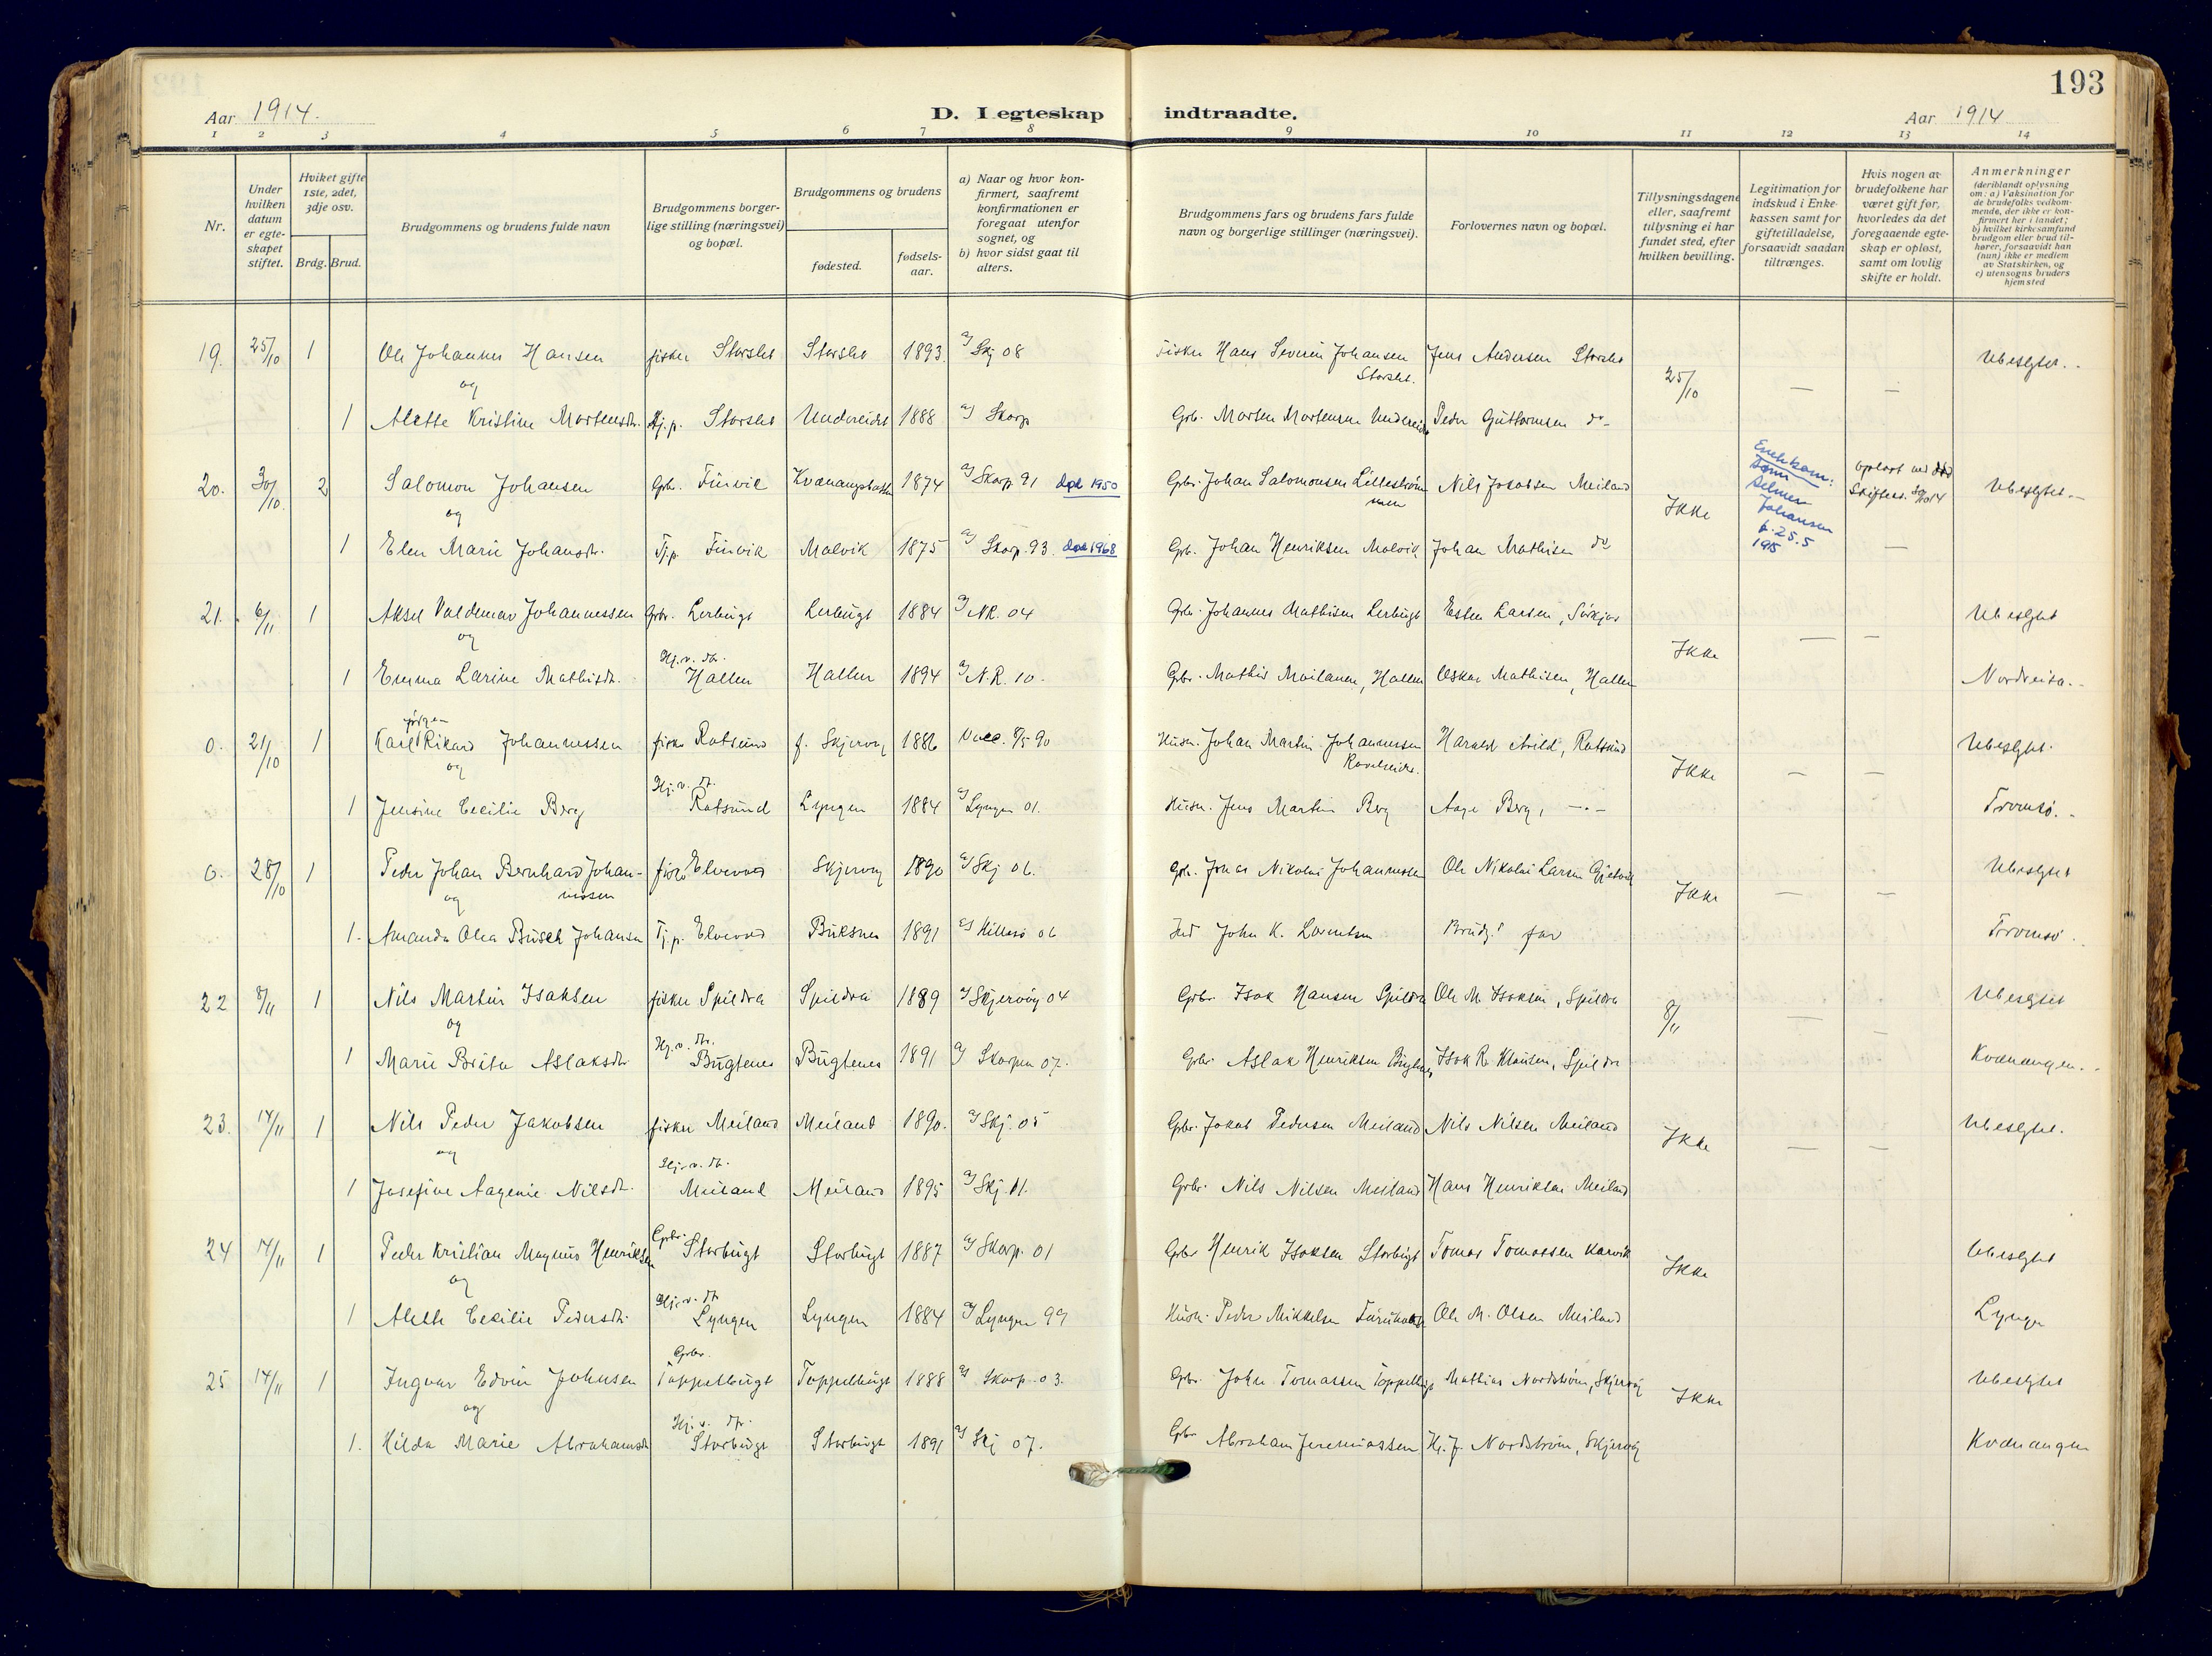 193
Aar 1914.
D. Egteskap indtraadte.
Aar 1914
1 2 3 4 5 6 7 8 9 10 11 12 13 14
Nr.
Under hvilken datum er egte-skapet stiftet.
Hviket gifte 1ste, 2det, 3dje osv.
Brdg. Brud.
Brudgommens og brudens fulde navn
Brudgommens borger-lige stilling (næringsvei) og bopæl.
Brudgommens og brudens
fødested.
fødsels-aar.
a) Naar og hvor kon-firmert, saafremt konfirmationen er foregaat utenfor sognet, og
b) hvor sidst gaat til alters.
Brudgommens fars og brudens fars fulde navn og borgerlige stillinger (næringsvei).
Forlovernes navn og bopæl.
Tillysningsdagene eller, saafremt tillysning ei har fundet sted, efter hvilken bevilling.
Legitimation for indskud i Enke-kassen samt for giftetilladelse, forsaavidt saadan tiltrænges.
Hvis nogen av brudefolkene har været gift før, hvorledes da det foregaaende egte-skap er opløst, samt om lovlig skifte er holdt.
Anmerkninger (deriblandt oplysning om: a) Vaksination for de brudefolks vedkom-mende, der ikke er kon-firmert her i landet; b) hvilket kirkesamfund brudgom eller brud til-hører, forsaavidt han (hun) ikke er medlem av Statskirken, og c) utensogns bruders hjemsted
19. 25/10 1 Ole Johannes Hansen fisker Storslet Storslet 1893. a) Skj 08 Fisker Hans Severin Johansen Storslet. Jens Andersen Storslet 25/10 — — Ubeslgtet.
og
1 Alette Kristine Mortensdtr. Tj.p. Storslet Undereidet 1888 a) Skorp Grb. Morten Mortensen Undereidet Peder Guttormsen do
20. 30/10 2 Salomon Johansen Grbr. Finvik Kvænangsbotn 1874 a) Skorp. 91 død 1950 Grbr. Johan Salomonsen Lillestrømmen Nils Jakobsen Meiland Ikke Selmer Johansen f. 25.5 1915 Opløst ved død Skifteat. Ubeslgtet
og
1 Elen Marie Johansdtr. Tj.p. Finvik Malvik 1875 a) Skorp. 93. død 1968 Grb. Johan Henriksen Malvik Johan Mathisen do —
21. 6/11 1 Aksel Valdemar Johannessen Grbr. Lerbugt Lerbugt 1884 a) N.R. 04 Grbr. Johannes Mathisen Lerbugt Esten Larsen, Sørkjos Ikke — — Ubeslgtet
og
1 Emma Larine Mathisdtr. Hj.v. dtr. Hallen Hallen 1894 a) N.R. 10. Grbr. Mathis Mailanen, Hallen Oskar Mathisen, Hallen Nordreisa.
0. 21/10 1 Karl Jørgen Rikard Johannessen fisker Rotsund f. Skjervøy 1886 Vacc. 9/5 90 Husm. Johan Martin Johannessen Ravelseidet. Harald Arild, Rotsund Ikke — — Ubeslgtet.
og
1 Jensine Cecilie Berg Hj.v. dtr. Rotsund Lyngen 1884 a) Lyngen 01. Husm. Jens Martin Berg Aage Berg, —.— Tromsø.
0. 28/10 1 Peder Johan Bernhard Johannessen fisker Elvevold Skjervøy 1890 a) Skj 06. Grb. Jonas Nikolai Johannessen Ole Nikolai Larsen Gjøvik Ikke — — Ubeslgtet
og
1. Amanda Olea Busch Johansen Tj.p. Elvevold Buksnes 1891 a) Hillesø 06 Ind John K. Lorentsen Brudg.s far Tromsø.
22 8/11 1 Nils Martin Isaksen fisker Spildra Spildra 1889 a) Skjervøy 04 Grbr. Isak Hansen Spildra Ole M. Isaksen, Spildra 8/11 — — Ubeslgtet
og
1 Marie Brita Aslaksdtr. Hj.v. dtr. Bugtenes Bugtenes 1891 a) Skorpen 07. Grbr. Aslak Henriksen Bugtenes Isak R. Klausen, Spildra Kvænangen.
23. 14/11 1 Nils Peder Jakobsen fisker Meiland Meiland 1890. a) Skj. 05 Grbr. Jakob Pedersen Meiland Nils Nilsen Meiland Ikke — — Ubeslgtet.
og
1 Josefine Aagenie Nilsdtr. Hj.v. dtr. Meiland Meiland 1895 a) Skj. 11. Grbr. Nils Nilsen Meiland Hans Henriksen Meiland
24 14/11 1 Peder Kristian Magnus Henriksen Grbr. Storbugt Storbugt 1887 a) Skorp. 01 Grbr Henrik Isaksen Storbugt Tomas Tomassen Karvik Ikke Ubeslgtet
og
1 Aleth Cecilie Pedersdtr. Hj.v. dtr Lyngen Lyngen 1884 a) Lyngen 99 Husm. Peder Mikkelsen Ole M. Olsen Meiland Lyngen
25 14/11 1 Ingvar Edvin Johnsen Grbr. Toppelbugt Toppelbugt 1888 a) Skorp. 03. Grbr. John Tomassen Toppelbugt Mathias Nordstrøm, Skjervøy Ikke Ubeslgtet
og
1. Hilda Marie Abrahamsdtr Hj.v. dtr. Storbugt Storbugt 1891 a) Skj 07. Grbr Abraham Jeremiassen H. J. Nordstrøm, Skjervøy Kvænangen